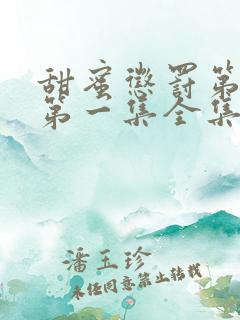 甜蜜惩罚第
第一集全集
潘玉珍
未经同意禁止转载